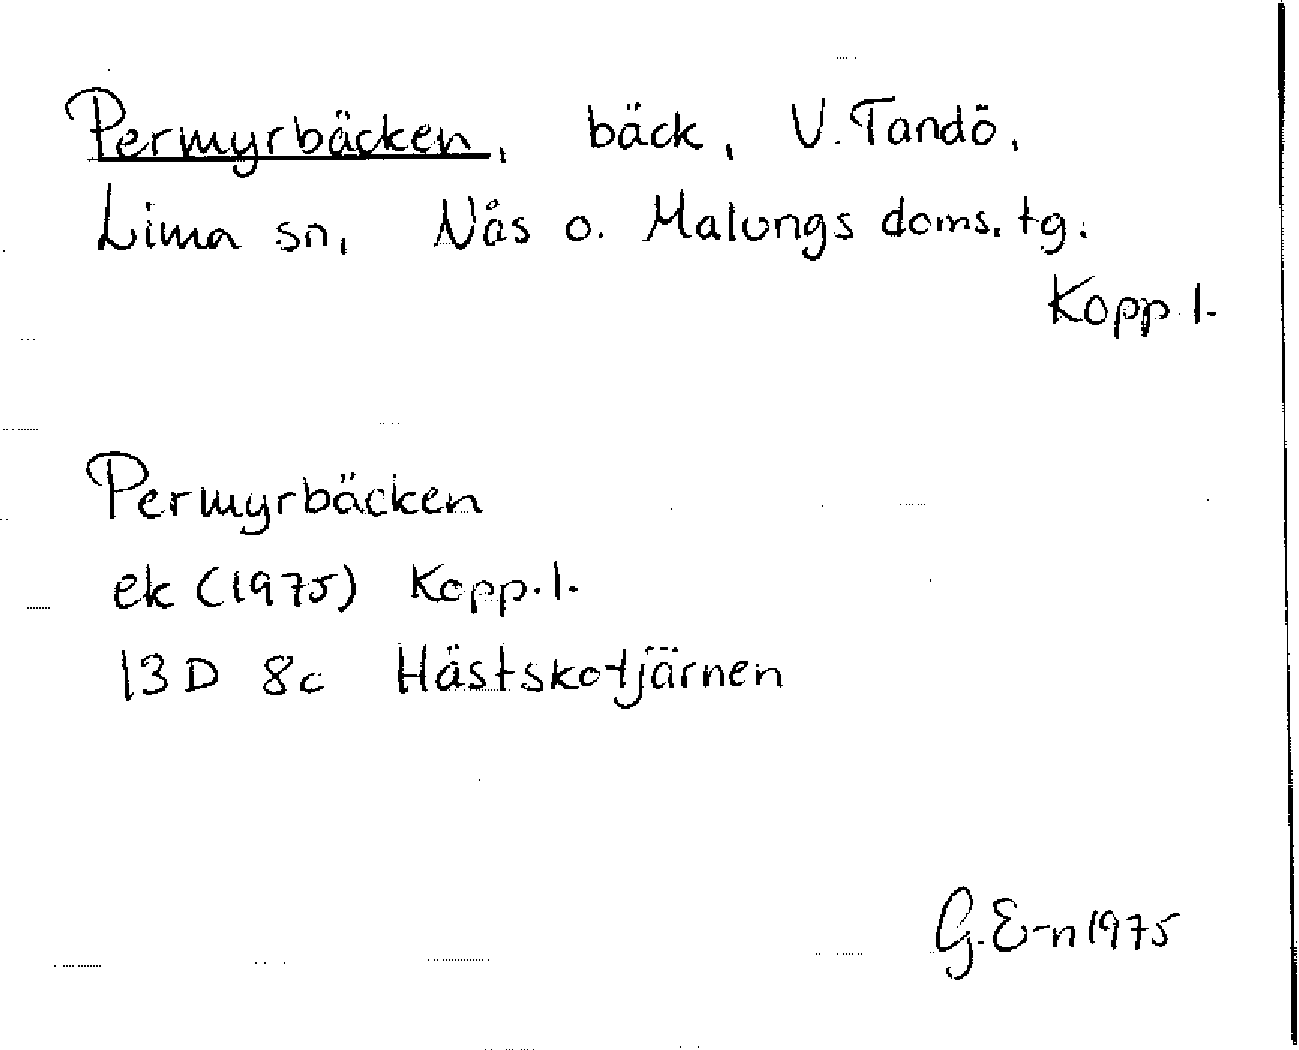 Permyrbäcken, bäck, V. Tandö,
Lima sn, Nås o. Malungs doms. tg.
Kopp. l.
Permyrbäcken
ek (1975) Kopp. l.
13 D 8c Hästskotjärnen
G. E-n 1975